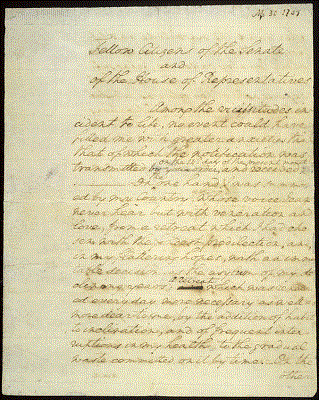 Ap. 30. 1789
Fellow Citizens of the Senate
and
of the House of Representatives
Among the vicissitudes in
cident to life, no event could have
filled me with greater anxieties than
that of which the notification was
transmitted by your order, and received
on the 14th day of the present month.
On the one hand, I was summon
ed by my Country, whose voice I can
never hear but with veneration and
love, from a retreat which I had cho
sen with the fondest predilection, and,
in my flattering hopes, with an immu
table decision, as the asylum of my de
clining years: a retreat which was rende
red every day more necessary as well as
more dear to me, by the addition of habit
to inclination, and of frequent inter
ruptions in my health to the gradual
waste committed on it by time. On the
other